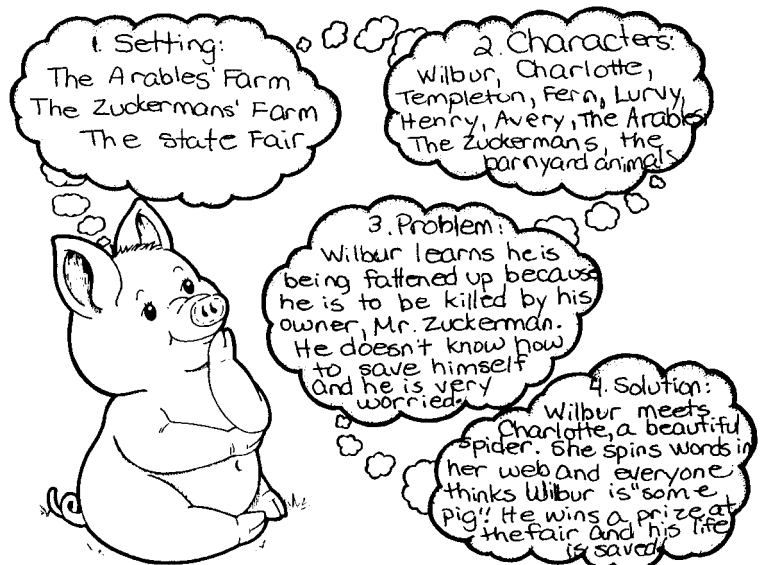 1. Setting:
The Arables' Farm
The Zuckermans' Farm
The State Fair
2. Characters:
Wilbur, Charlotte,
Templeton, Fern, Lurvy,
Henry, Avery, The Arables
The Zuckermans, the
barnyard animals
3. Problem:
Wilbur learns he is
being fattened up because
he is to be killed by his
owner, Mr. Zuckerman.
He doesn't know how
to save himself
and he is very
worried.
4. Solution:
Wilbur meets
Charlotte, a beautiful
spider. She spins words in
her web and everyone
thinks Wilbur is "some
pig"! He wins a prize at
the fair and his life
is saved.